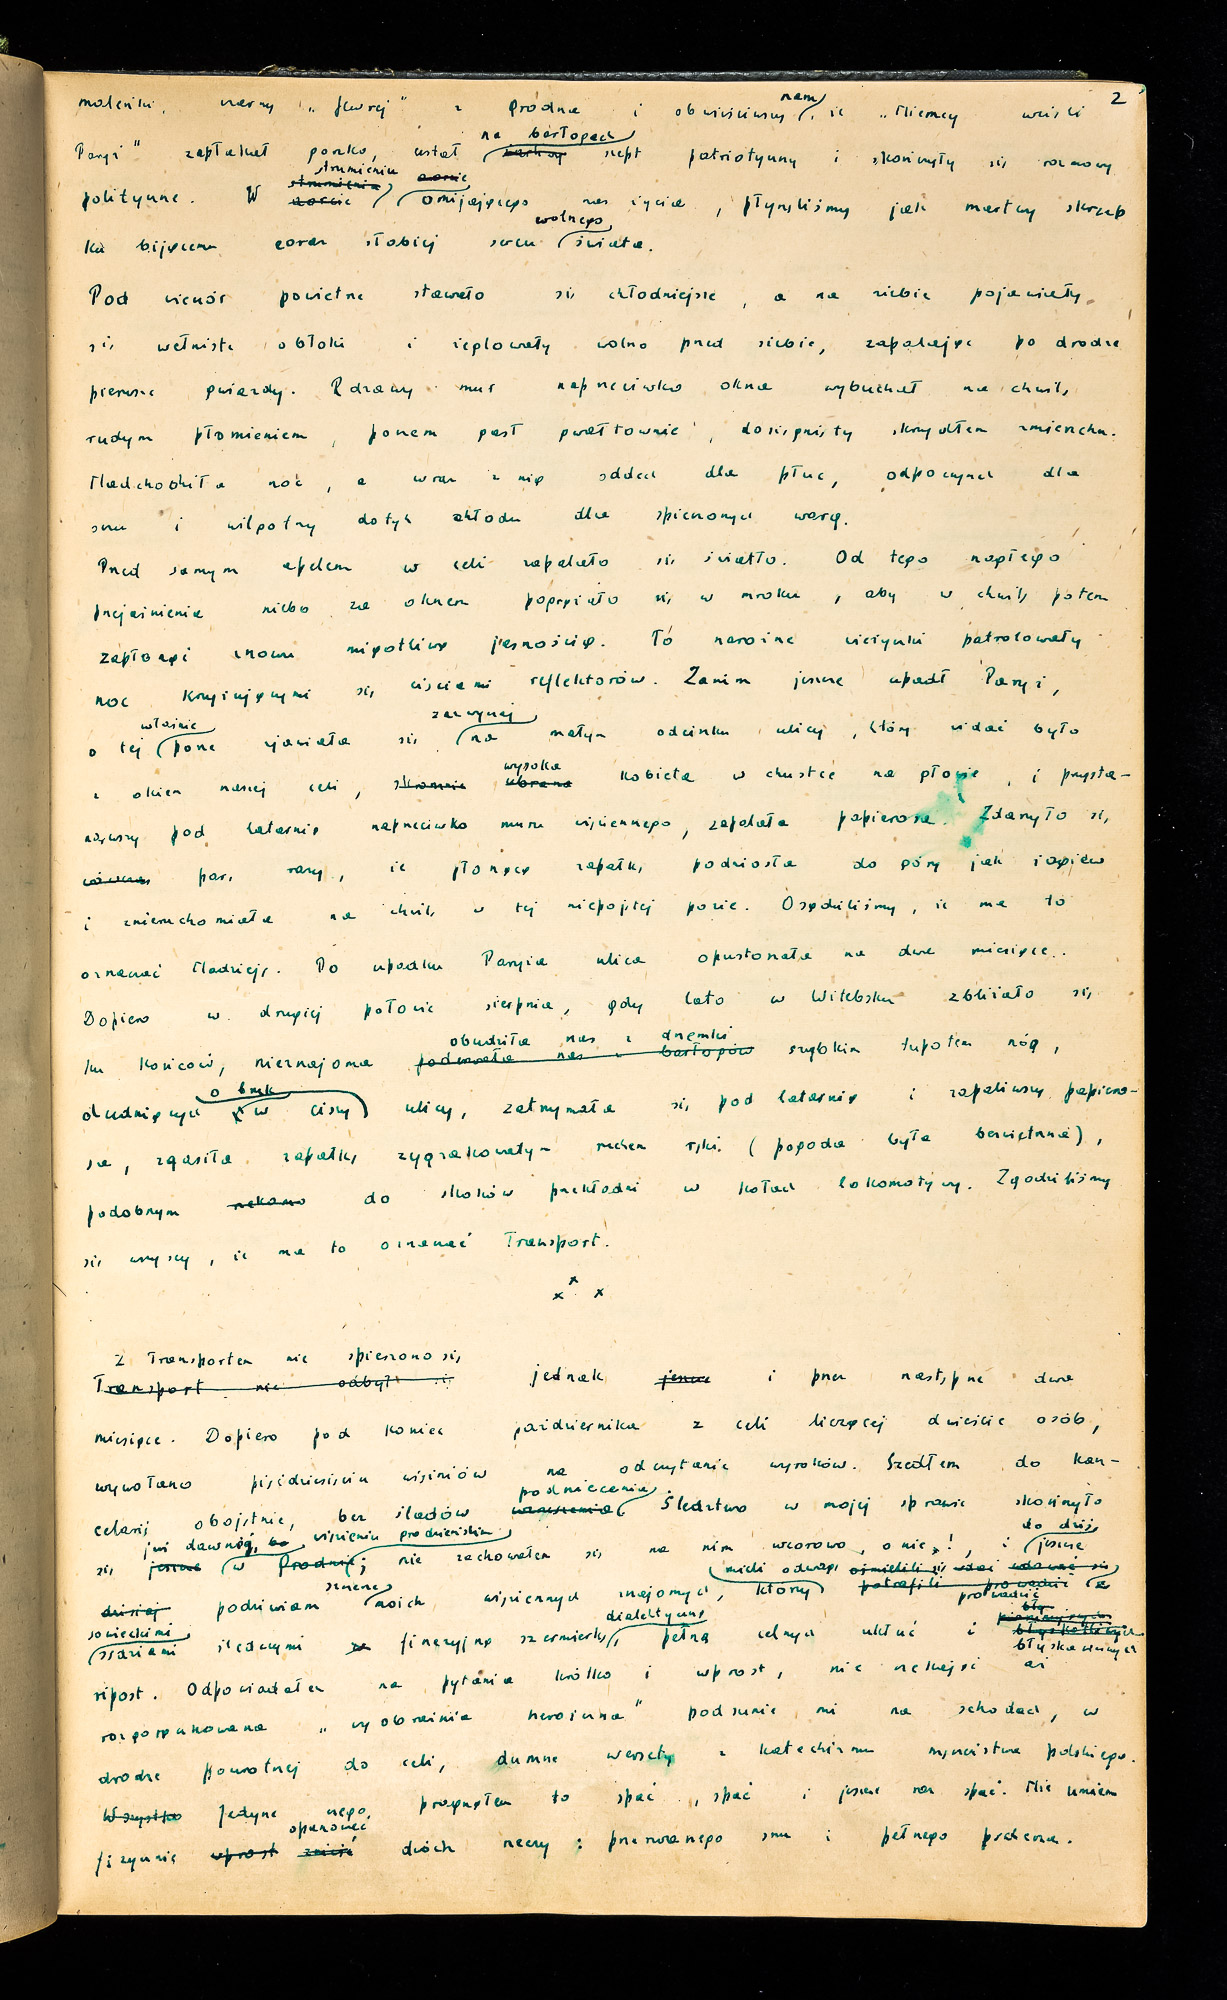 2
maleńki, czarny „Jewrej" z Grodna i obwieściwszy nam, że „Niemcy wzięli
Paryż" zapłakał gorzko, ustał na barłogach szept patriotyczny i skończyły się rozmowy
polityczne. W strumieniu omijającego nas życia, płynęliśmy jak martwy skrzep
ku bijącemu coraz słabiej sercu wolnego świata.
Pod wieczór powietrze stawało się chłodniejsze, a na niebie pojawiały
się wełniste obłoki i żeglowały wolno przed siebie, zapalając po drodze
pierwsze gwiazdy. Rdzawy mur naprzeciwko okna wybuchał na chwilę
rudym płomieniem, potem gasł gwałtownie, dosięgnięty skrzydłem zmierzchu.
Nadchodziła noc, a wraz z nią oddech dla płuc, odpoczynek dla
oczu i wilgotny dotyk chłodu dla spieczonych warg.
Przed samym apelem w celi zapalało się światło. Od tego nagłego
przejaśnienia niebo za oknem pogrążało się w mroku, aby w chwilę potem
zapłonąć znowu migotliwą jasnością. To narożne wieżyczki patrolowały
noc krzyżującymi się wiciami reflektorów. Zanim jeszcze upadł Paryż,
o tej właśnie porze zjawiała się zazwyczaj na małym odcinku ulicy, który widać było
z okien naszej celi, wysoka kobieta w chustce na głowie, i przysta-
nąwszy pod latarnią naprzeciwko muru więziennego, zapalała papierosa. Zdarzyło się
parę razy, że płonącą zapałkę podniosła do góry jak żagiew
i znieruchomiała na chwilę w tej niepojętej pozie. Osądziliśmy, że ma to
oznaczać Nadzieję. Po upadku Paryża ulica opustoszała na dwa miesiące.
Dopiero w drugiej połowie sierpnia, gdy lato w Witebsku zbliżało się
ku końcowi, nieznajoma obudziła nas z drzemki szybkim tupotem nóg,
dudniących o bruk w ciszy ulicy, zatrzymała się pod latarnią i zapaliwszy papiero-
sa, zgasiła zapałkę zygzakowatym ruchem ręki (pogoda była bezwietrzna),
podobnym do skoków przekładni w kołach lokomotywy. Zgodziliśmy
się wszyscy, że ma to oznaczać Transport.
x x x
Z Transportem nie spieszono się
jednak i przez następne dwa
miesiące. Dopiero pod koniec października z celi liczącej dwieście osób,
wywołano pięćdziesięciu więźniów na odczytanie wyroków. Szedłem do kan-
celarii obojętnie, bez śladów podniecenia. Śledztwo w mojej sprawie skończyło
się już dawno, w więzieniu grodzieńskim; nie zachowałem się na nim wzorowo, o nie!, i jeszcze do dziś
podziwiam szczerze moich więziennych znajomych, którzy mieli odwagę prowadzić z
sowieckimi sędziami śledczymi finezyjną szermierkę dialektyczną, pełną celnych ukłuć i błyskawicznych
ripost. Odpowiadałem na pytania krótko i wprost, nie czekając aż
rozgorączkowana „wyobraźnia heroiczna" podsunie mi na schodach, w
drodze powrotnej do celi, dumne wersety z katechizmu męczeństwa polskiego.
Jedyne czego pragnąłem to spać, spać i jeszcze raz spać. Nie umiem
fizycznie opanować dwóch rzeczy: przerwanego snu i pełnego pęcherza.